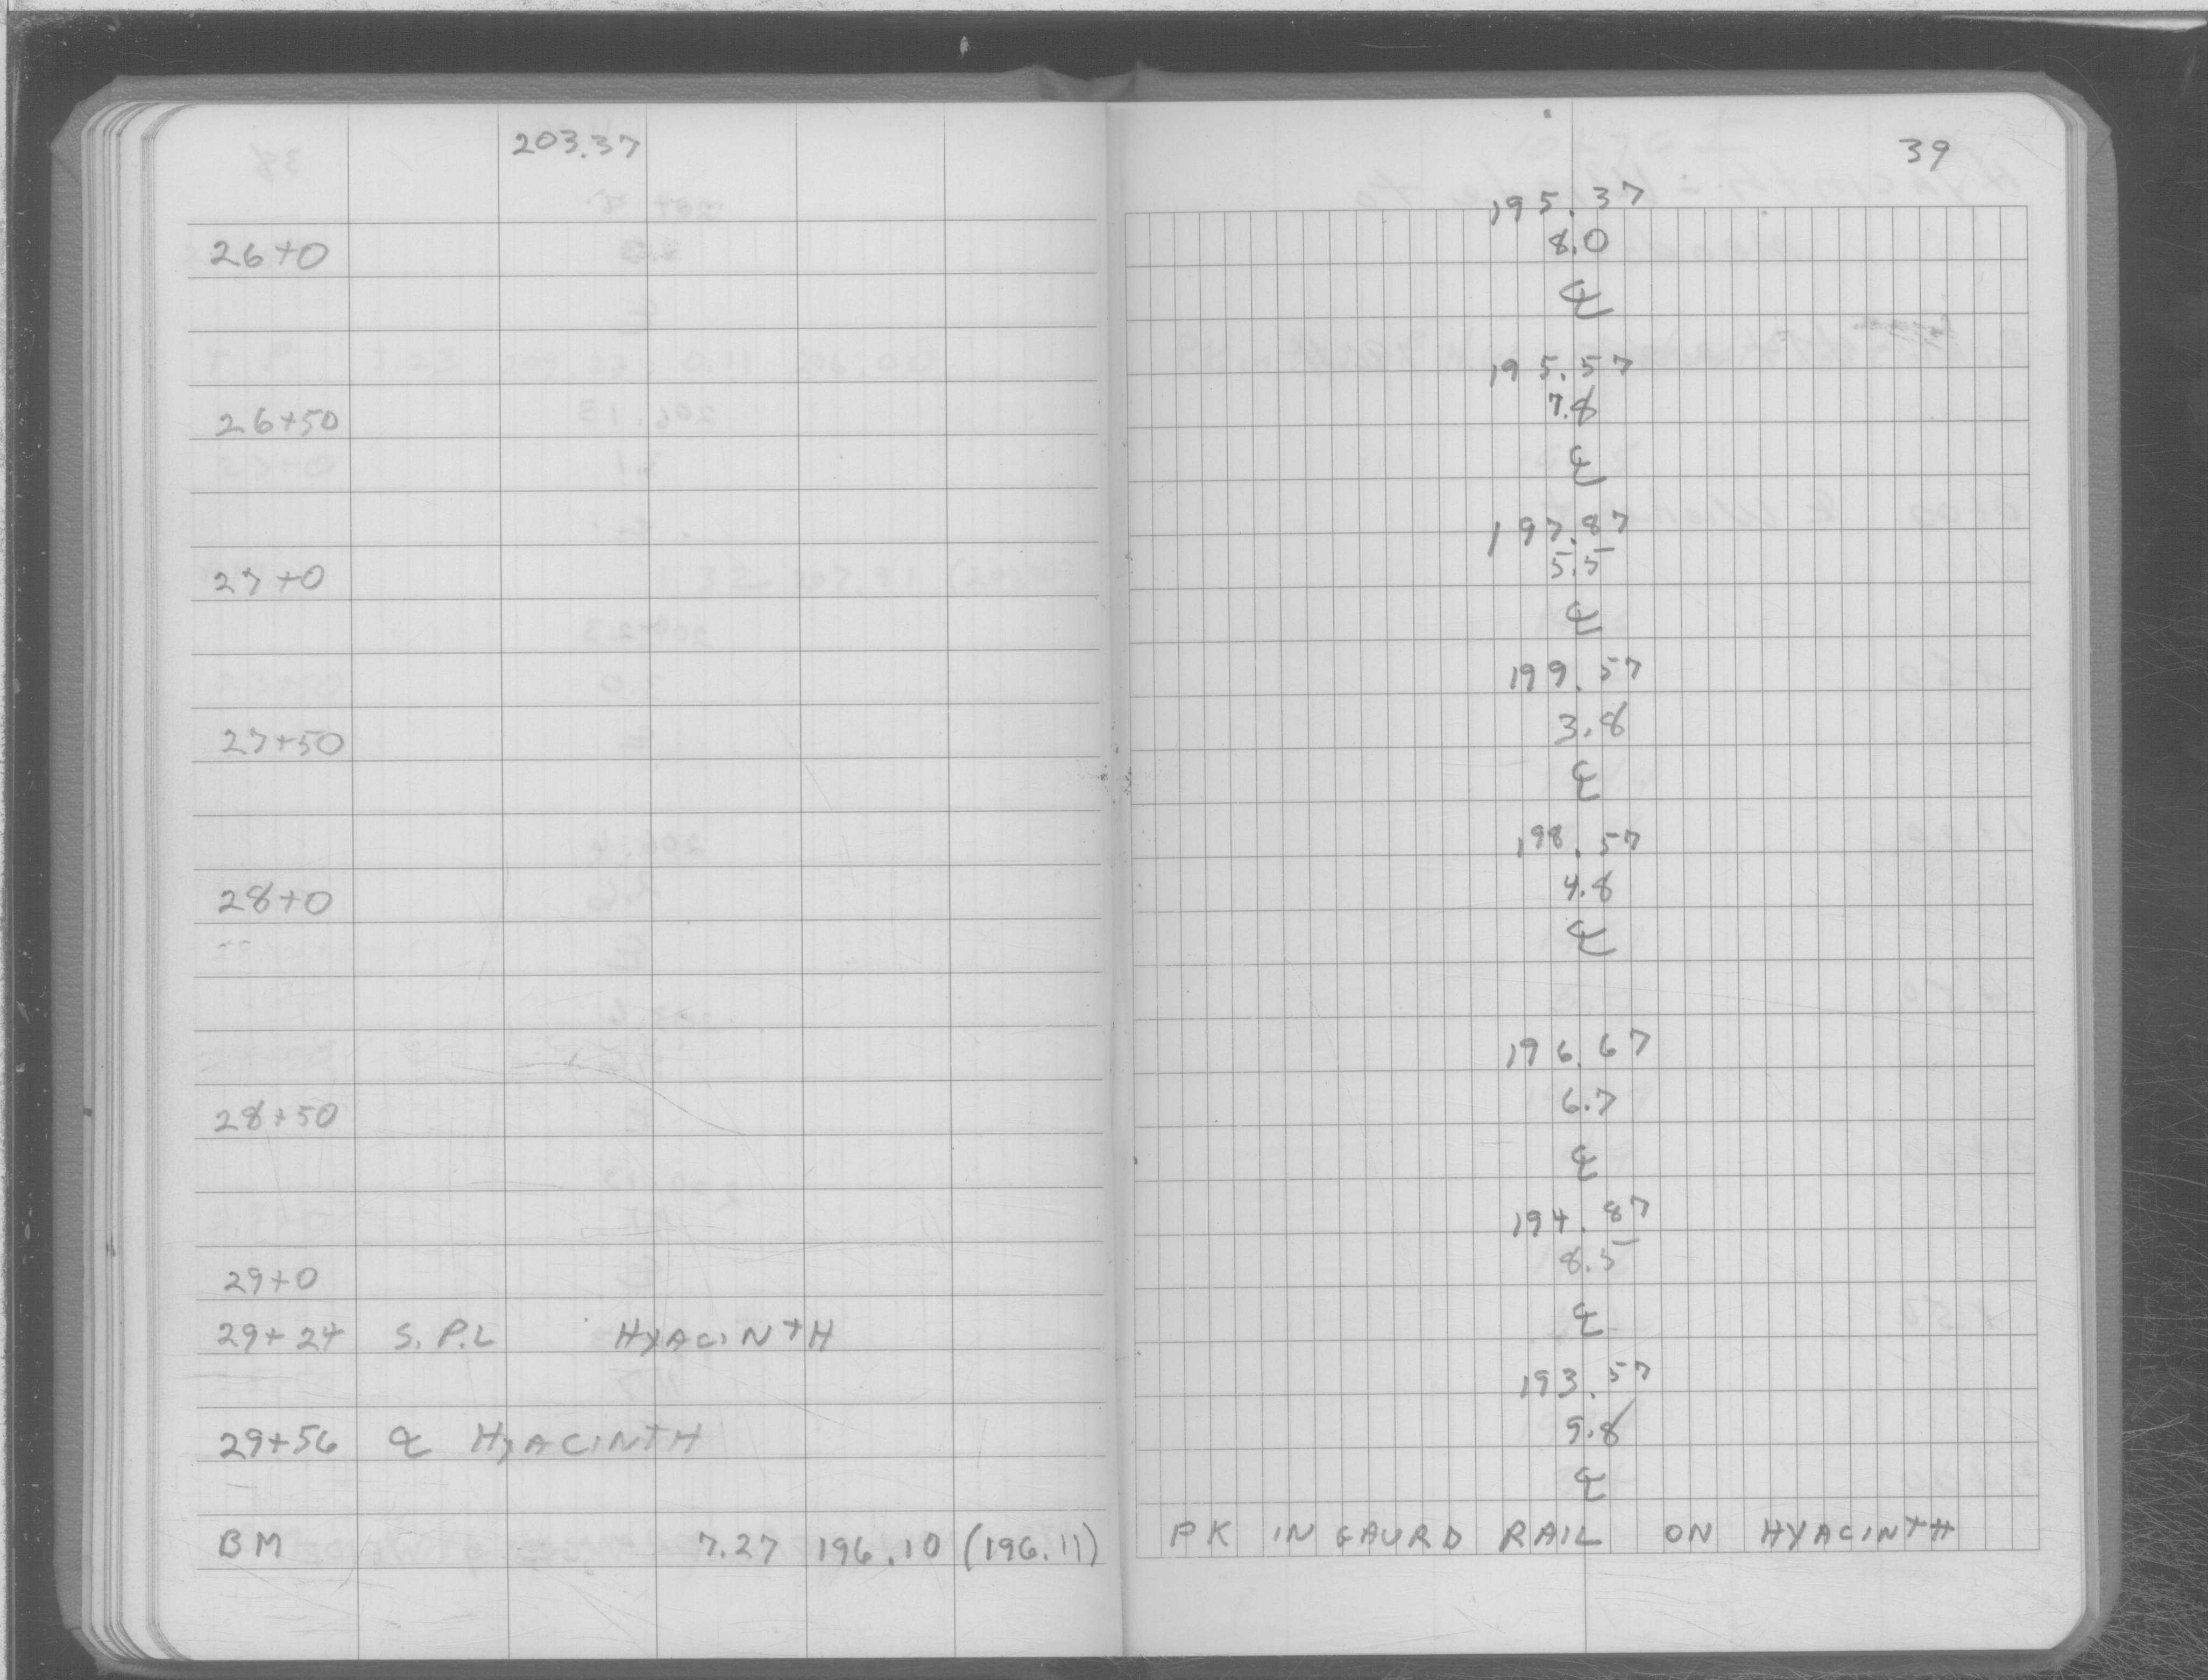 203.37
39
195.37
26+0 8.0
℄
195.57
26+50 7.8
℄
197.87
27+0 5.5
℄
199.57
27+50 3.8
℄
198.57
28+0 4.8
℄
196.67
28+50 6.7
℄
194.87
29+0 8.5
29+24 S.P.L HYACINTH ℄
193.57
29+56 ℄ HYACINTH 9.8
℄
BM 7.27 196.10 (196.11) PK IN GAURD RAIL ON HYACINTH